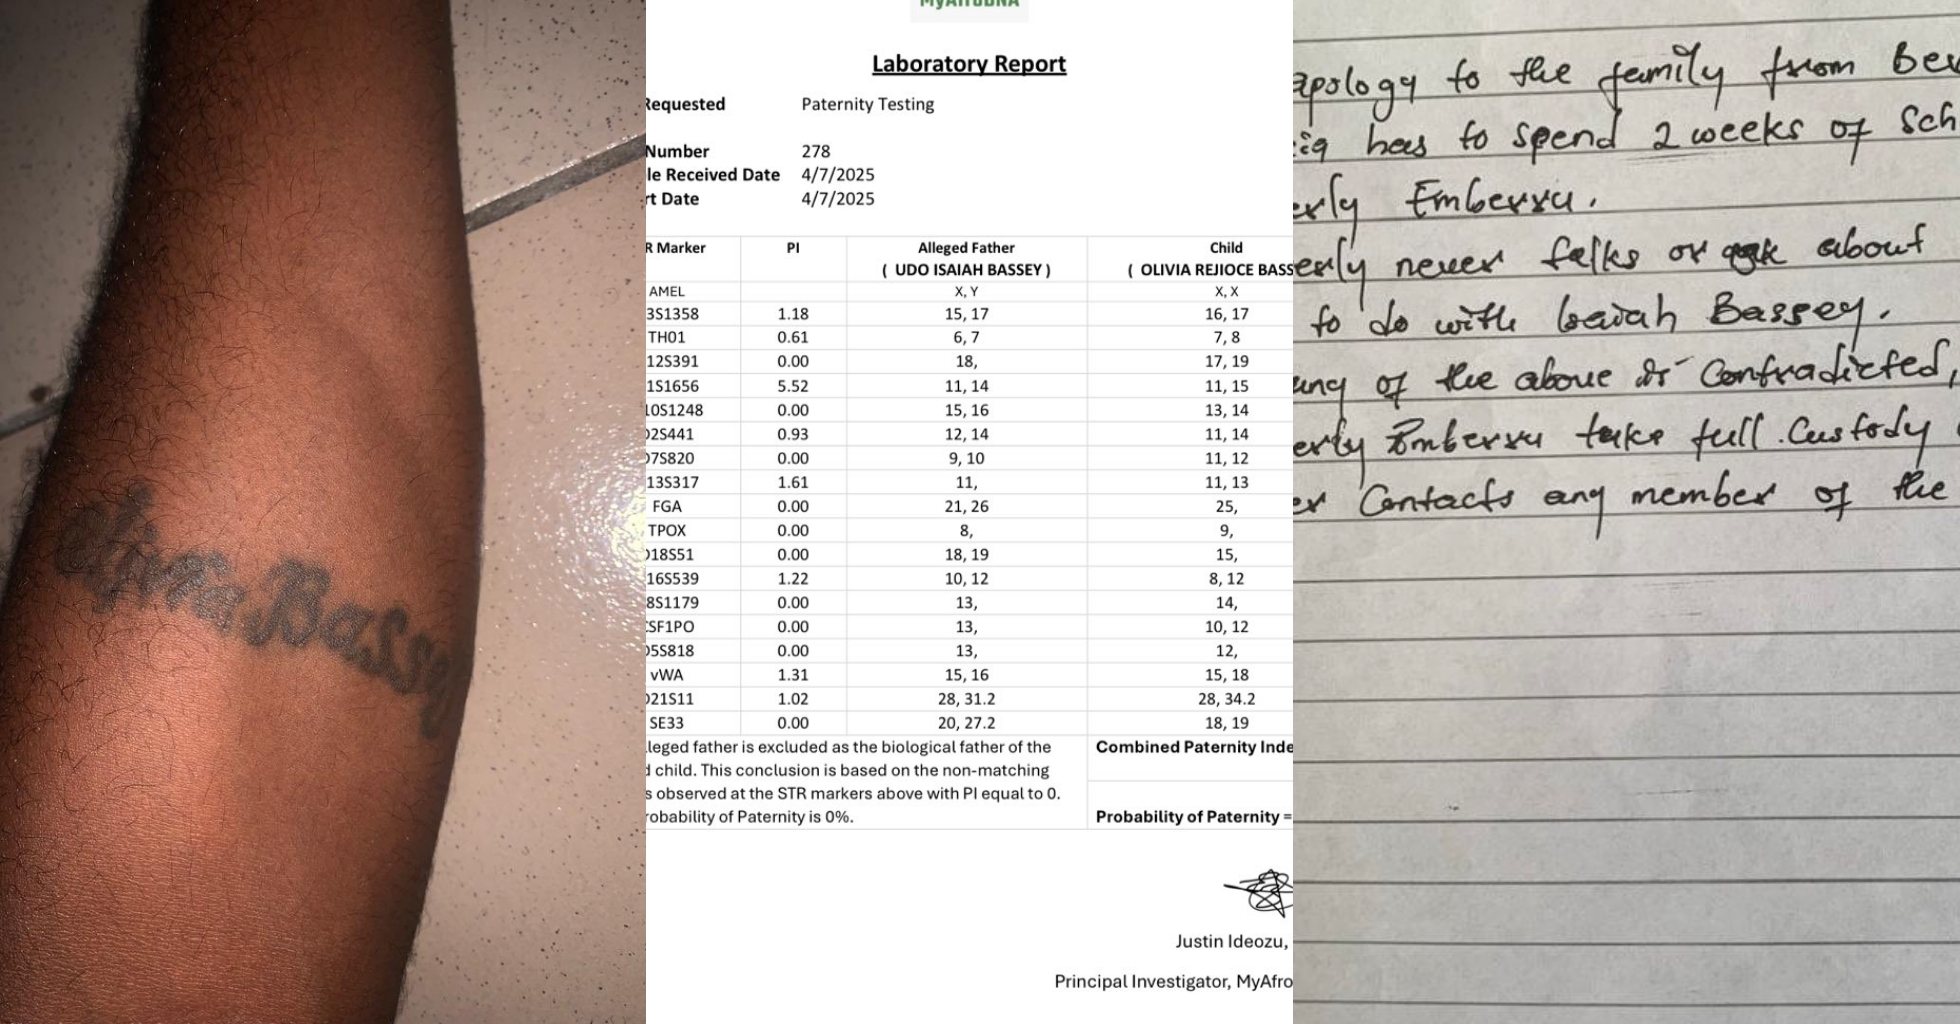 Bassey
MyAfroDNA
Laboratory Report
Requested Paternity Testing
Number 278
le Received Date 4/7/2025
rt Date 4/7/2025
R Marker PI Alleged Father Child
( UDO ISAIAH BASSEY ) ( OLIVIA REJIOCE BASS
AMEL X, Y X, X
3S1358 1.18 15, 17 16, 17
TH01 0.61 6, 7 7, 8
12S391 0.00 18, 17, 19
1S1656 5.52 11, 14 11, 15
10S1248 0.00 15, 16 13, 14
D2S441 0.93 12, 14 11, 14
D7S820 0.00 9, 10 11, 12
13S317 1.61 11, 11, 13
FGA 0.00 21, 26 25,
TPOX 0.00 8, 9,
D18S51 0.00 18, 19 15,
16S539 1.22 10, 12 8, 12
8S1179 0.00 13, 14,
CSF1PO 0.00 13, 10, 12
D5S818 0.00 13, 12,
vWA 1.31 15, 16 15, 18
D21S11 1.02 28, 31.2 28, 34.2
SE33 0.00 20, 27.2 18, 19
lleged father is excluded as the biological father of the
d child. This conclusion is based on the non-matching
s observed at the STR markers above with PI equal to 0.
robability of Paternity is 0%.
Combined Paternity Inde
Probability of Paternity =
Justin Ideozu,
Principal Investigator, MyAfro
apology to the family from Bev
has to spend 2 weeks of Sch
erly Embersu.
erly never talks or about
to do with Isaiah Bassey.
any of the above is Contradicted,
erly Embersu take full Custody
er Contacts any member of the